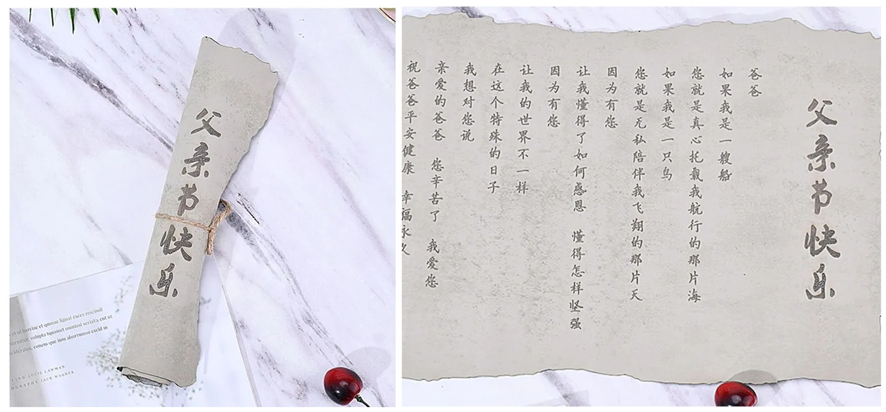 父亲节快乐
et ut torrime et quossus ligni eaces eosciuull
CHLAND JULIE LANWAN
GRAPHY JACK WARNER
父亲节快乐
爸爸
如果我是一艘船
您就是真心托载我航行的那片海
如果我是一只鸟
您就是无私陪伴我飞翔的那片天
因为有您
让我懂得了如何感恩 懂得怎样坚强
因为有您
让我的世界不一样
在这个特殊的日子
我想对您说
亲爱的爸爸 您辛苦了 我爱您
祝爸爸平安健康 幸福永久